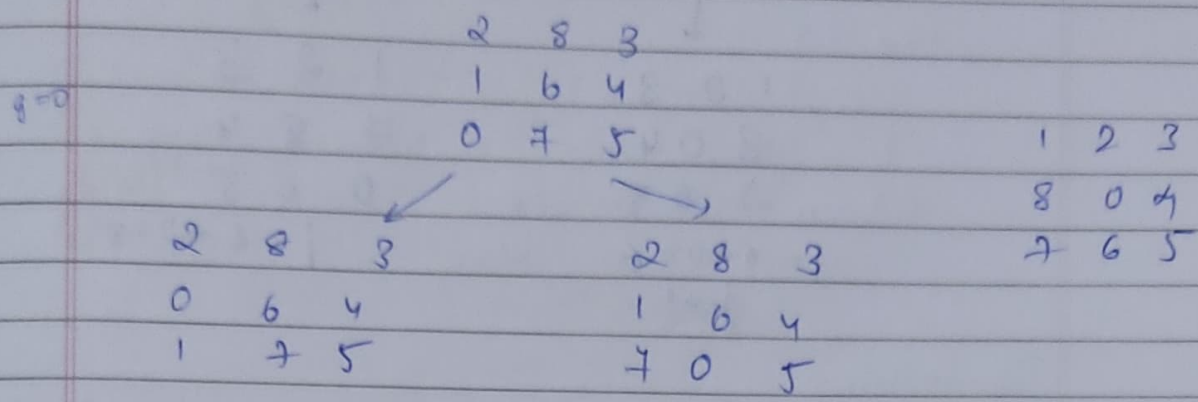 2 8 3
1 6 4
g=0
0 7 5
1 2 3
8 0 4
7 6 5
2 8 3
0 6 4
1 7 5
2 8 3
1 6 4
7 0 5